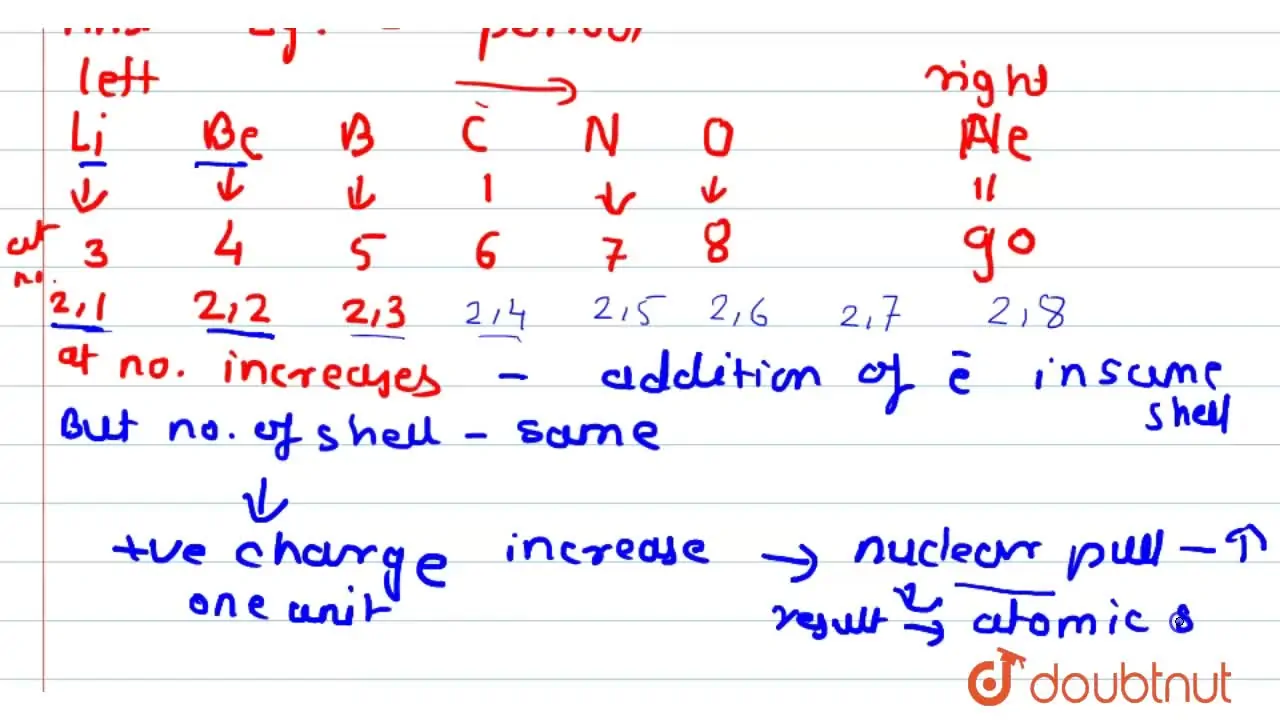 left → right
Li Be B C N O Ne
↓ ↓ ↓ ı ↓ ↓ ıı
at no. 3 4 5 6 7 8 90
2,1 2,2 2,3 2,4 2,5 2,6 2,7 2,8
at no. increases - addition of ē in same shell
But no. of shell - same
↓
+ve charge increase → nuclear pull - ↑
one unit result → atomic s
doubtnut